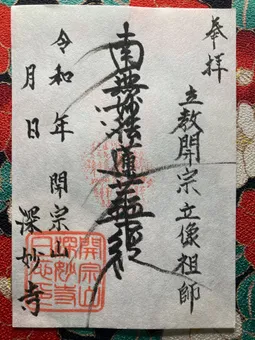 奉拝
立教開宗立像祖師
南無妙法蓮華経
開宗山
深妙寺
令和年
月日